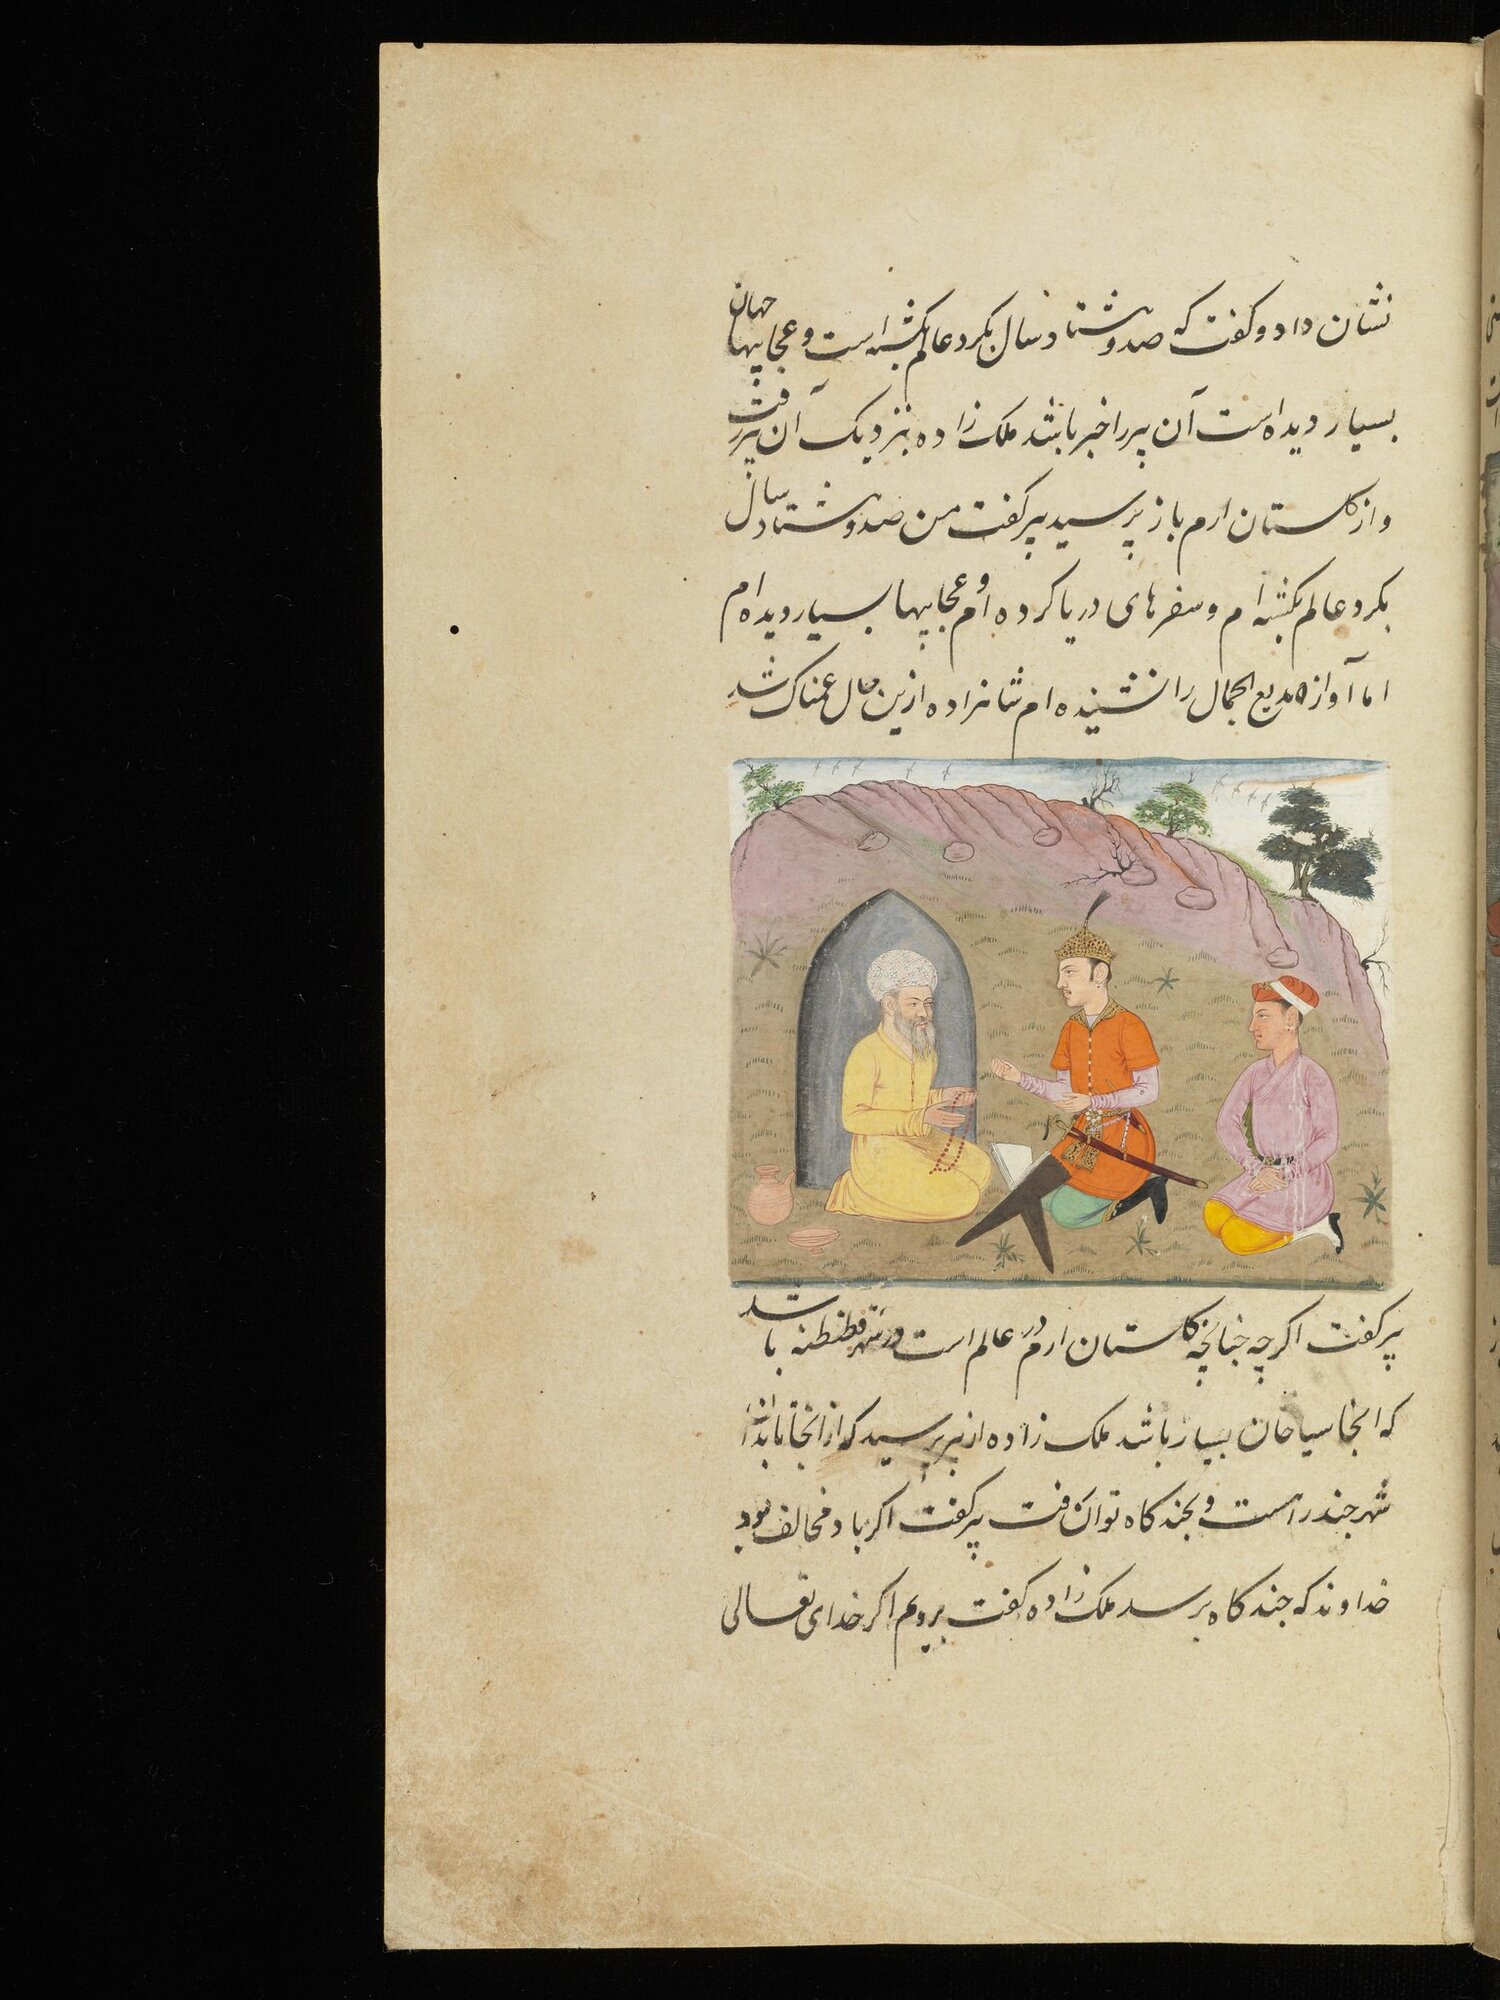 نشان داد و گفت که صد و هشتاد سال بگرد عالم بگشته است و عجایبهای جهان
بسیار دیده است آن پیر را خبر باشد ملک زاده بنزدیک آن پیر رفت
و از گلستان ارم باز پرسید پیر گفت من صد و هشتاد سال
بگرد عالم بگشته ام و سفرهای دریا کرده ام و عجایبها بسیار دیده ام
اما آوازه بدیع الجمال را نشنیده ام شاهزاده ازین حال غمناک شد
پیر گفت اگرچه چنانچه گلستان ارم در عالم است در شهر قطنطنه باشد
که آنجا سیاحان بسیار باشد ملک زاده از پیر پرسید که از آنجا تا
شهر چند راهست و بچند گاه توان رفت پیر گفت اگر باد مخالف نبود
خداوند که چند گاه برسد ملک زاده گفت برویم اگر خدای تعالی